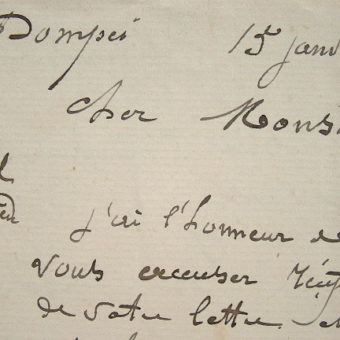 Pompei 15 janv
cher Mons
j'ai l'honneur de
vous accuser réc
de votre lettre